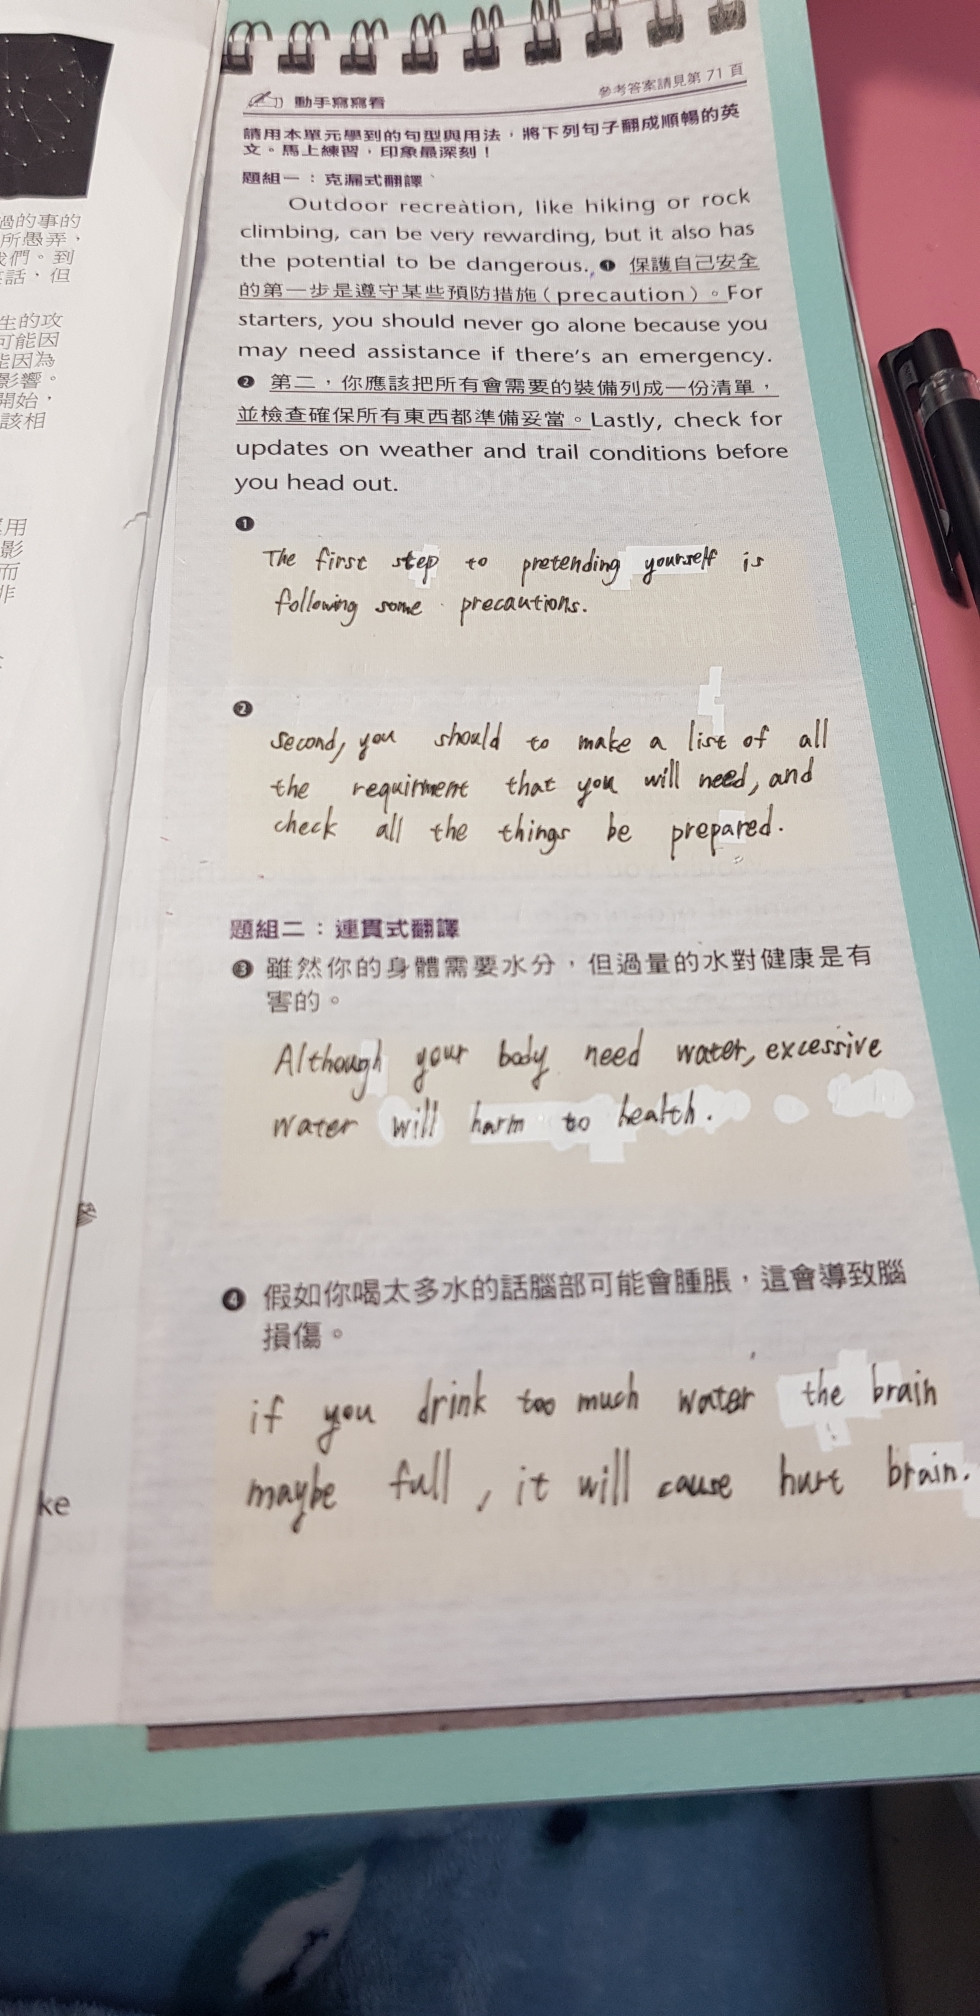 過的事的
所愚弄，
我們。到
話，但
生的攻
可能因
能因為
影響。
開始，
該相
用
影
而
非
ke
動手寫寫看
參考答案請見第 71 頁
請用本單元學到的句型與用法，將下列句子翻成順暢的英
文。馬上練習，印象最深刻！
題組一：克漏式翻譯
Outdoor recreation, like hiking or rock
climbing, can be very rewarding, but it also has
the potential to be dangerous. ❶ 保護自己安全
的第一步是遵守某些預防措施（precaution）。For
starters, you should never go alone because you
may need assistance if there's an emergency.
❷ 第二，你應該把所有會需要的裝備列成一份清單，
並檢查確保所有東西都準備妥當。Lastly, check for
updates on weather and trail conditions before
you head out.
❶
The first step to pretending yourself is
following some precautions.
❷
second, you should to make a list of all
the requirment that you will need, and
check all the things be prepared.
題組二：連貫式翻譯
❸ 雖然你的身體需要水分，但過量的水對健康是有
害的。
Although your body need water, excessive
water will harm to health.
❹ 假如你喝太多水的話腦部可能會腫脹，這會導致腦
損傷。
if you drink too much water the brain
maybe full, it will cause hurt brain.